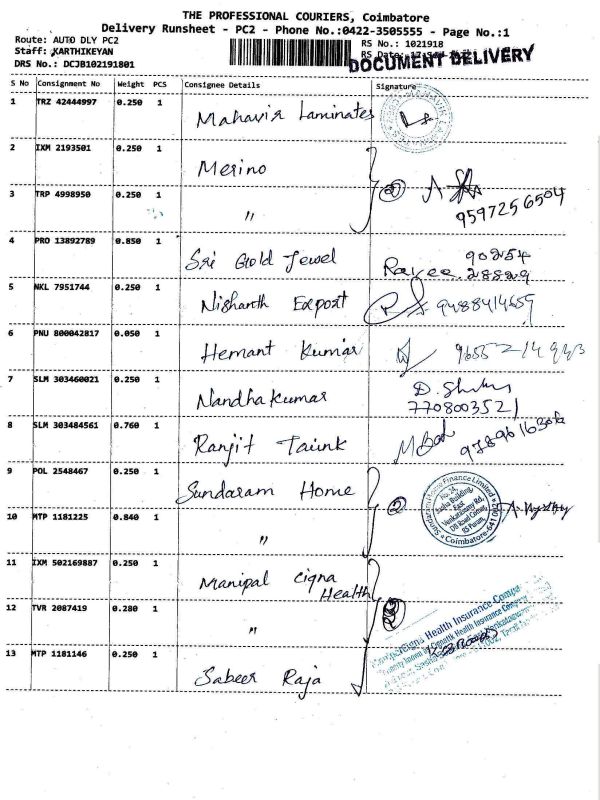 THE PROFESSIONAL COURIERS, Coimbatore
Delivery Runsheet - PC2 - Phone No.:0422-3505555 - Page No.:1
Route: AUTO DLY PC2
RS No.: 1021918
Staff: KARTHIKEYAN
RS Date:
DOCUMENT DELIVERY
DRS No.: DCJB102191801
S No Consignment No Weight PCS Consignee Details Signature
1 TRZ 42444997 0.250 1 Mahavir Laminates
2 IXM 2193501 0.250 1 Merino
3 TRP 4998950 0.250 1 "
② 9597256504
4 PRO 13892789 0.850 1 Sri Gold Jewel
90254
Ravee. 28829
5 NKL 7951744 0.250 1 Nishanth Export 9488414659
6 PNU 800042817 0.050 1 Hemant Kumar
7 SLM 303460021 0.250 1 Nandhakumar
7708003521
8 SLM 303484561 0.760 1 Ranjit Taink
9 POL 2548467 0.250 1 Sundaram Home
②
Sundaram Home Finance Limited
Coimbatore-641
10 MTP 1181225 0.840 1 "
11 IXM 502169887 0.250 1 Manipal Cigna
Health
12 TVR 2087419 0.280 1 "
Health Insurance Company
13 MTP 1181146 0.250 1 Sabeer Raja